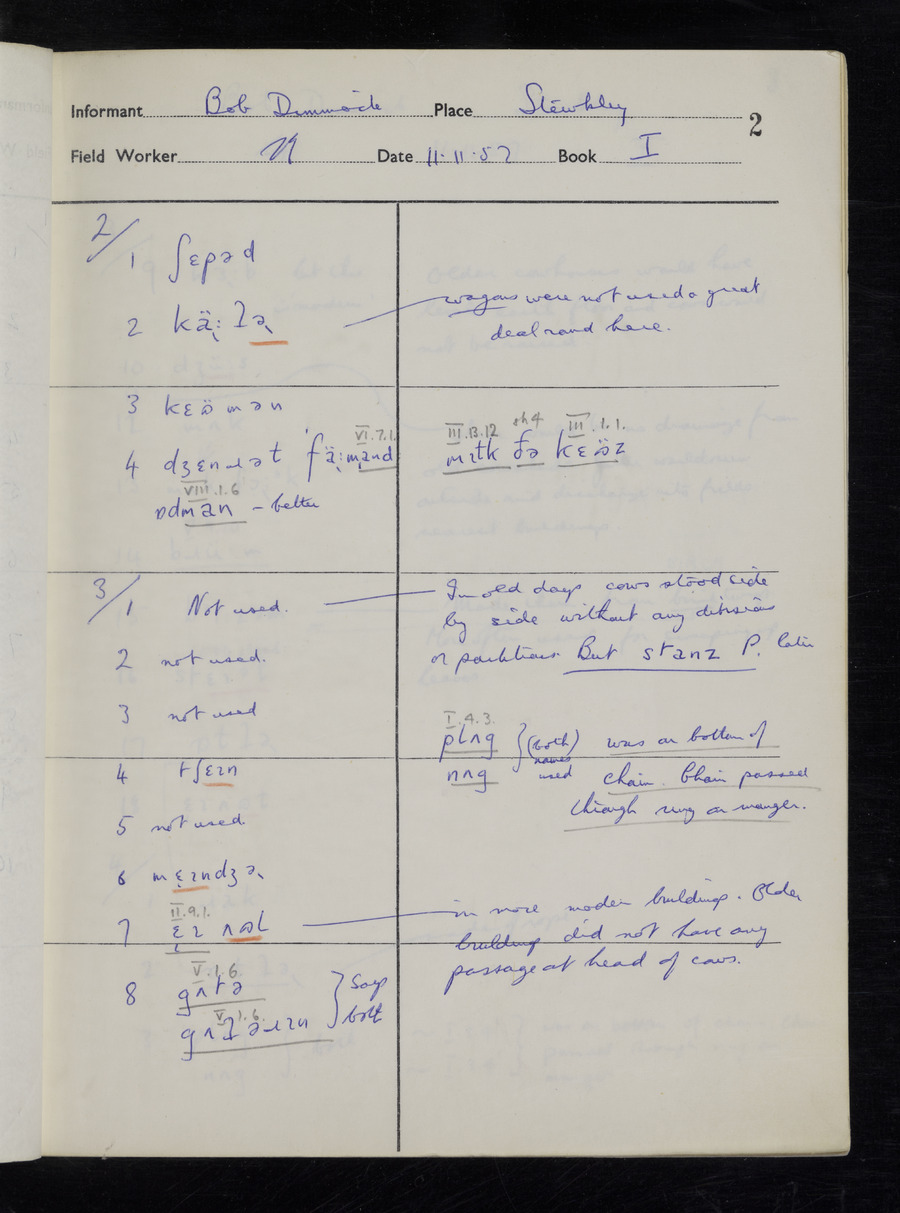 Informant Bob Dimmock Place Stewkley
2
Field Worker N Date 11.11.52 Book I
2/
1 ʃɛpəd
2 kạ̈: l̃ə̣
wagons were not used a great
deal round here.
3 kɛömən
4 dʒɛnɹət 'fä:mənd
VI.7.1.
III.13.12 sh 4 III.1.1.
mɪtk ðə kɛöz
VIII.1.6
ɒdmən – better
3/
1 Not used.
In old days cows stood side
by side without any divisions
or partitions But stanz P. later
2 not used.
3 not used
I.4.3.
plʌg } (both names used) was on bottom of
nʌg
chain. Chain passed
through ring on manger.
4 tʃɛɪn
5 not used
6 mɛɪndʒə
II.9.1.
7 ɛɪ
in more modern buildings. Older
building did not have any
passage at head of cows.
V.1.6.
8 gʌtə } Says
V.1.6.
both